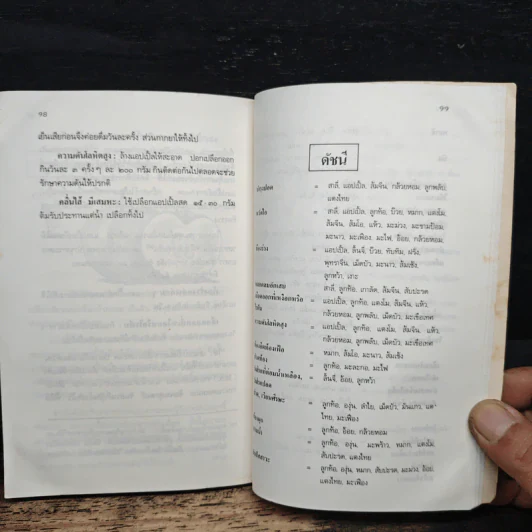 ๙๘
เย็นเสียก่อนจึงค่อยดื่มวันละครั้ง ส่วนกากยาให้ทิ้งไป
ความดันโลหิตสูง : ล้างแอปเปิ้ลให้สะอาด ปอกเปลือกออก
กินวันละ ๓ ครั้งๆ ละ ๒๐๐ กรัม กินติดต่อกันไปตลอดจะช่วย
รักษาความดันให้ปรกติ
คลื่นไส้ มีเสมหะ : ใช้เปลือกแอปเปิ้ลสด ๑๕-๓๐ กรัม
ต้มรับประทานแต่น้ำ เปลือกทิ้งไป
๙๙
ดัชนี
= สาลี่, แอปเปิ้ล, ส้มจีน, กล้วยหอม, ลูกพลับ,
แตงไทย
= สาลี่, แอปเปิ้ล, ลูกท้อ, บ๊วย, หมาก, แตงโม,
ส้มจีน, ส้มโอ, แห้ว, มะม่วง, มะขามป้อม,
มะนาว, มะเฟือง, มะไฟ, อ้อย, กล้วยหอม,
= แอปเปิ้ล, ลิ้นจี่, บ๊วย, ทับทิม, ฝรั่ง,
พุทราจีน, เม็ดบัว, มะนาว, ส้มเช้ง,
ลูกหว้า, เงาะ
= สาลี่, ลูกท้อ, เกาลัด, ส้มจีน, สับปะรด
= แอปเปิ้ล, ลูกท้อ, แตงโม, ส้มจีน, แห้ว,
กล้วยหอม, ลูกพลับ, เม็ดบัว, มะเขือเทศ
ความดันโลหิตสูง = แอปเปิ้ล, ลูกท้อ, แตงโม, ส้มจีน, แห้ว,
กล้วยหอม, ลูกพลับ, เม็ดบัว, มะเขือเทศ
= หมาก, ส้มโอ, มะนาว, ส้มเช้ง
= ลูกท้อ, มะละกอ, มะไฟ
= ลิ้นจี่, อ้อย, ลูกหว้า
= ลูกท้อ, องุ่น, ลำไย, เม็ดบัว, แตง
ไทย, มะเฟือง
= ลูกท้อ, อ้อย, กล้วยหอม
= ลูกท้อ, องุ่น, มะพร้าว, หมาก, แตงโม,
สับปะรด, แตงไทย
= ลูกท้อ, องุ่น, หมาก, สับปะรด, มะม่วง, อ้อย,
แตงไทย, มะเฟือง